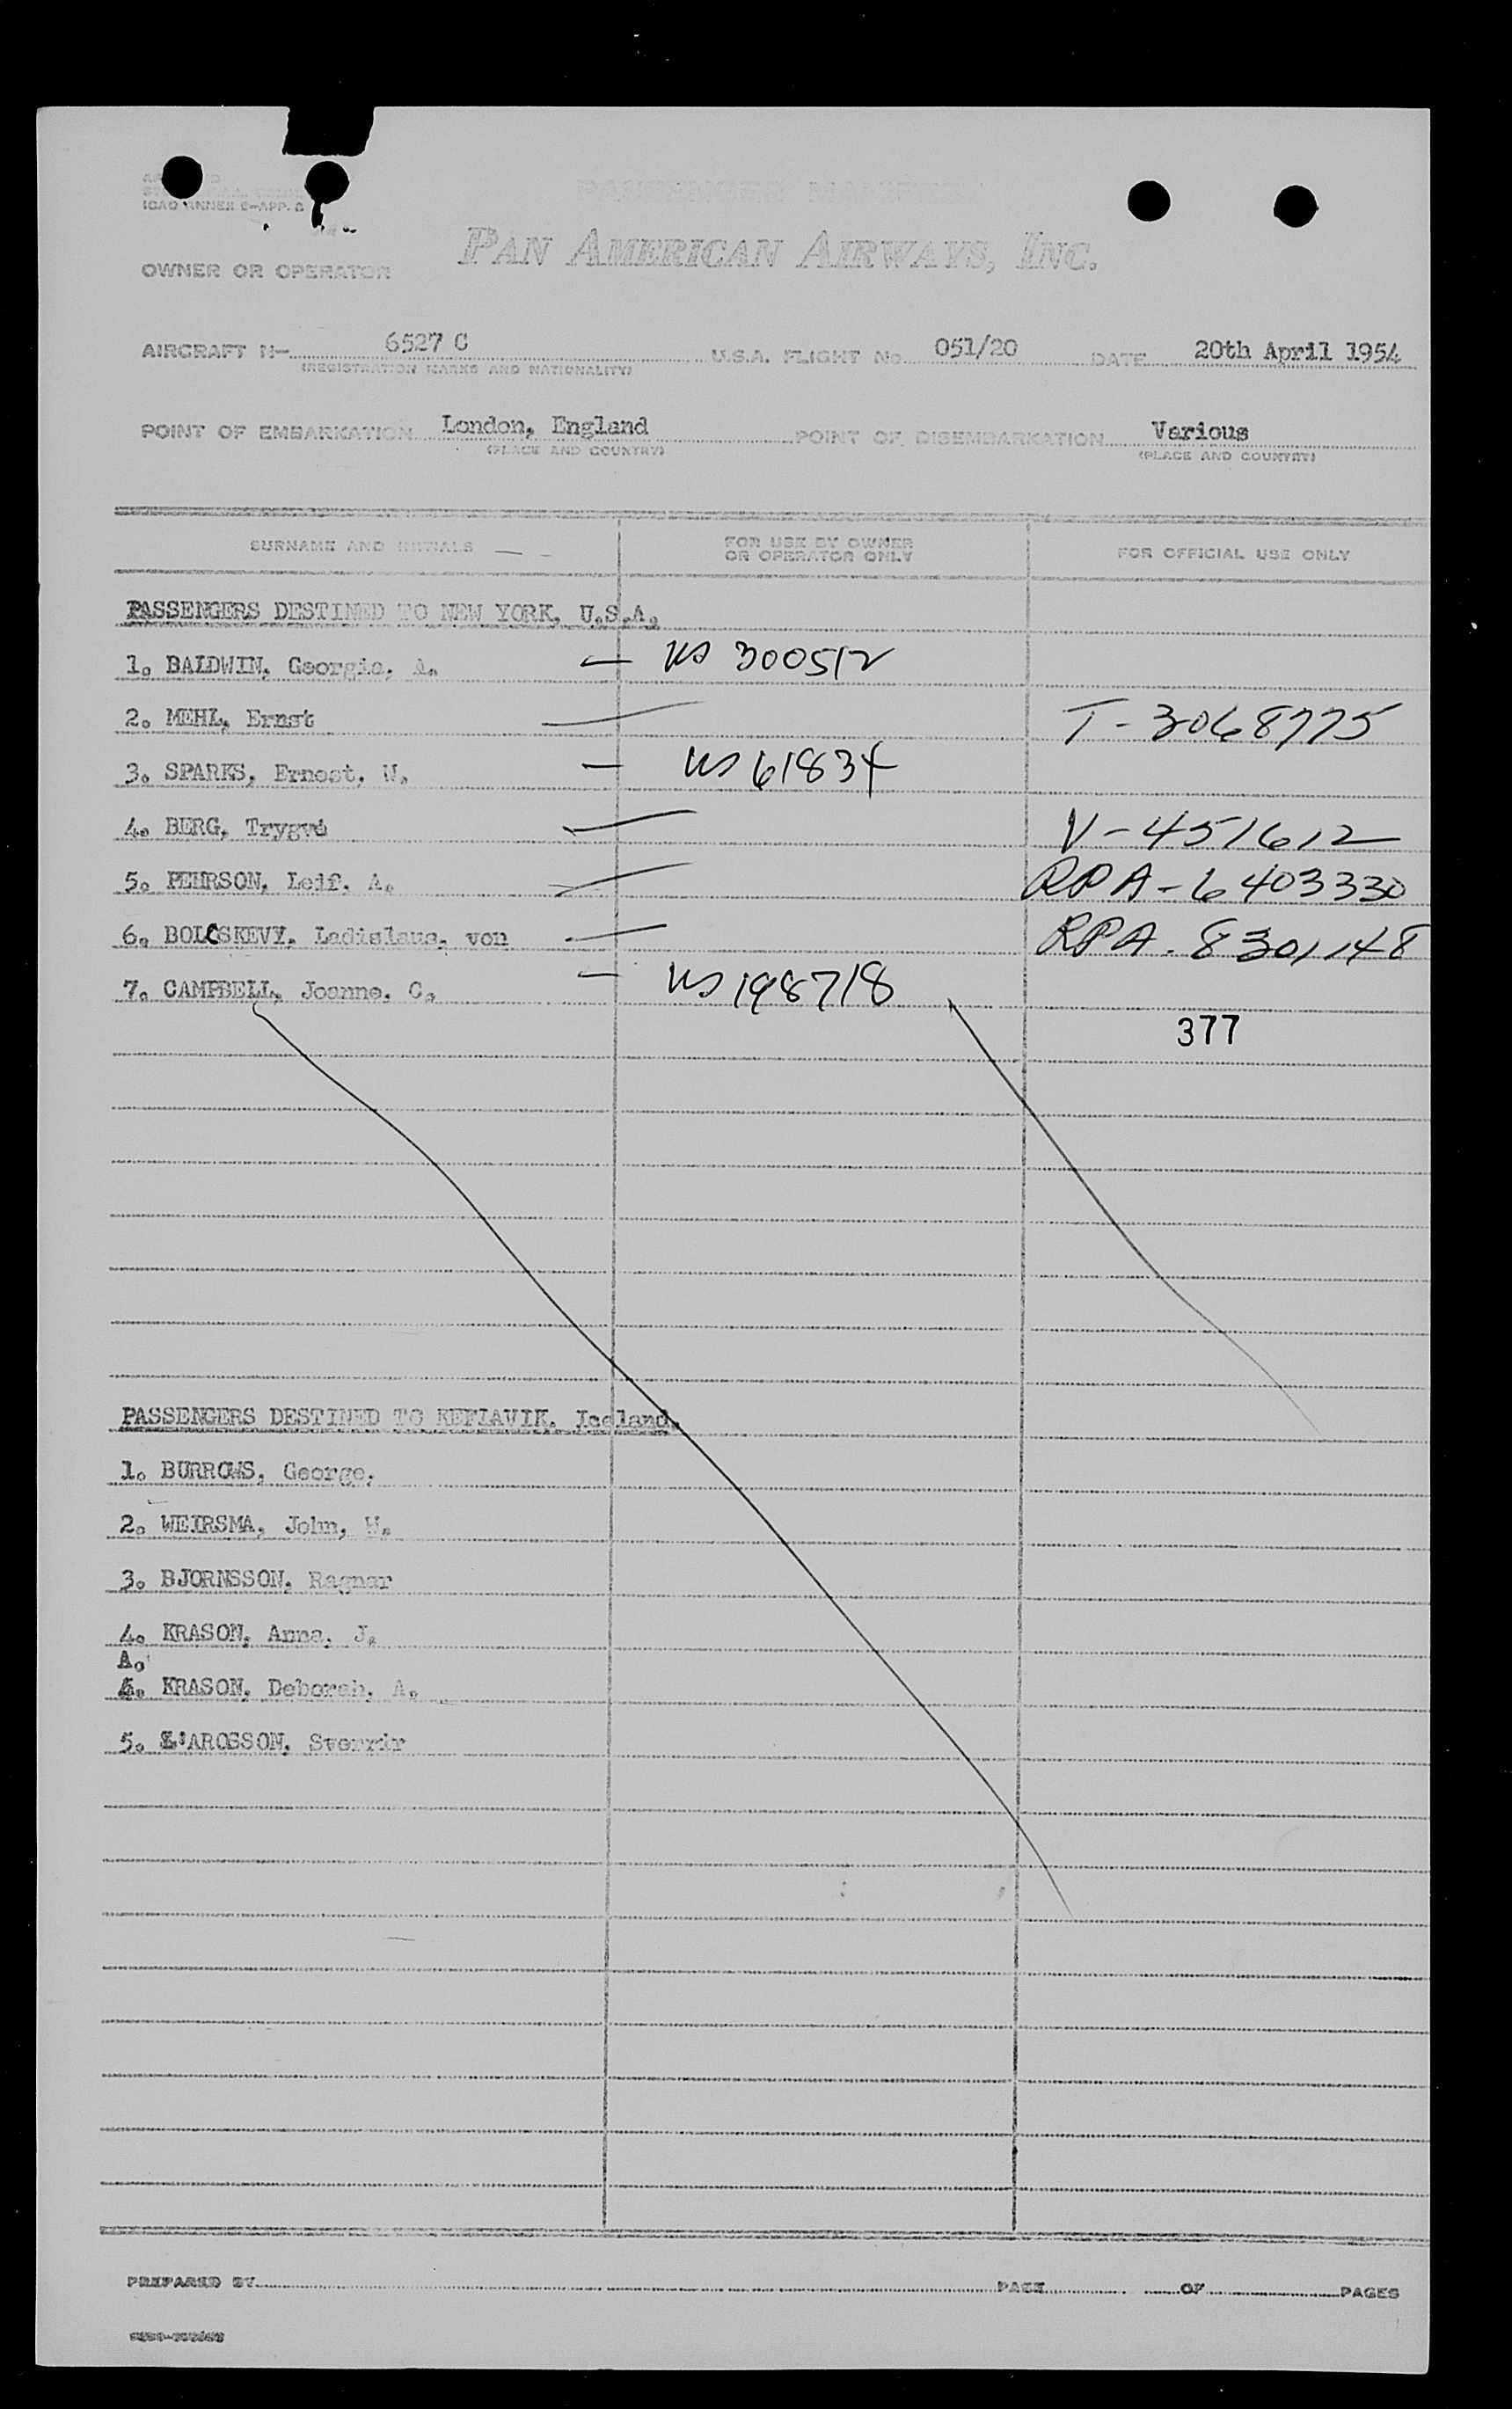 PASSENGER MANIFEST
ICAO ANNEX 9—APP. C
PAN AMERICAN AIRWAYS, INC.
OWNER OR OPERATOR
AIRCRAFT N— 6527 C U.S.A. FLIGHT No. 051/20 DATE 20th April 1954
(REGISTRATION MARKS AND NATIONALITY)
POINT OF EMBARKATION London, England POINT OF DISEMBARKATION Various
(PLACE AND COUNTRY) (PLACE AND COUNTRY)
SURNAME AND INITIALS FOR USE BY OWNER OR OPERATOR ONLY FOR OFFICIAL USE ONLY
PASSENGERS DESTINED TO NEW YORK, U.S.A.
1. BALDWIN, Georgia, A. — US 300512
2. MEHL, Ernst — T-3068775
3. SPARKS, Ernest, W. — US 61834
4. BERG, Trygvé — V-451612
5. PEHRSON, Leif, A. — RPA-6403330
6. BOLCSKEVY, Ladislaus, von — RPA-8301148
7. CAMPBELL, Joanne, C. — US 198718
377
PASSENGERS DESTINED TO KEFLAVIK, Iceland.
1. BURROWS, George,
2. WEIRSMA, John, W.
3. BJORNSSON, Ragnar
4. KRASON, Anna, J.
A.
KRASON, Deborah, A.
5. AROSSON, Sverrir
PREPARED BY PAGE OF PAGES